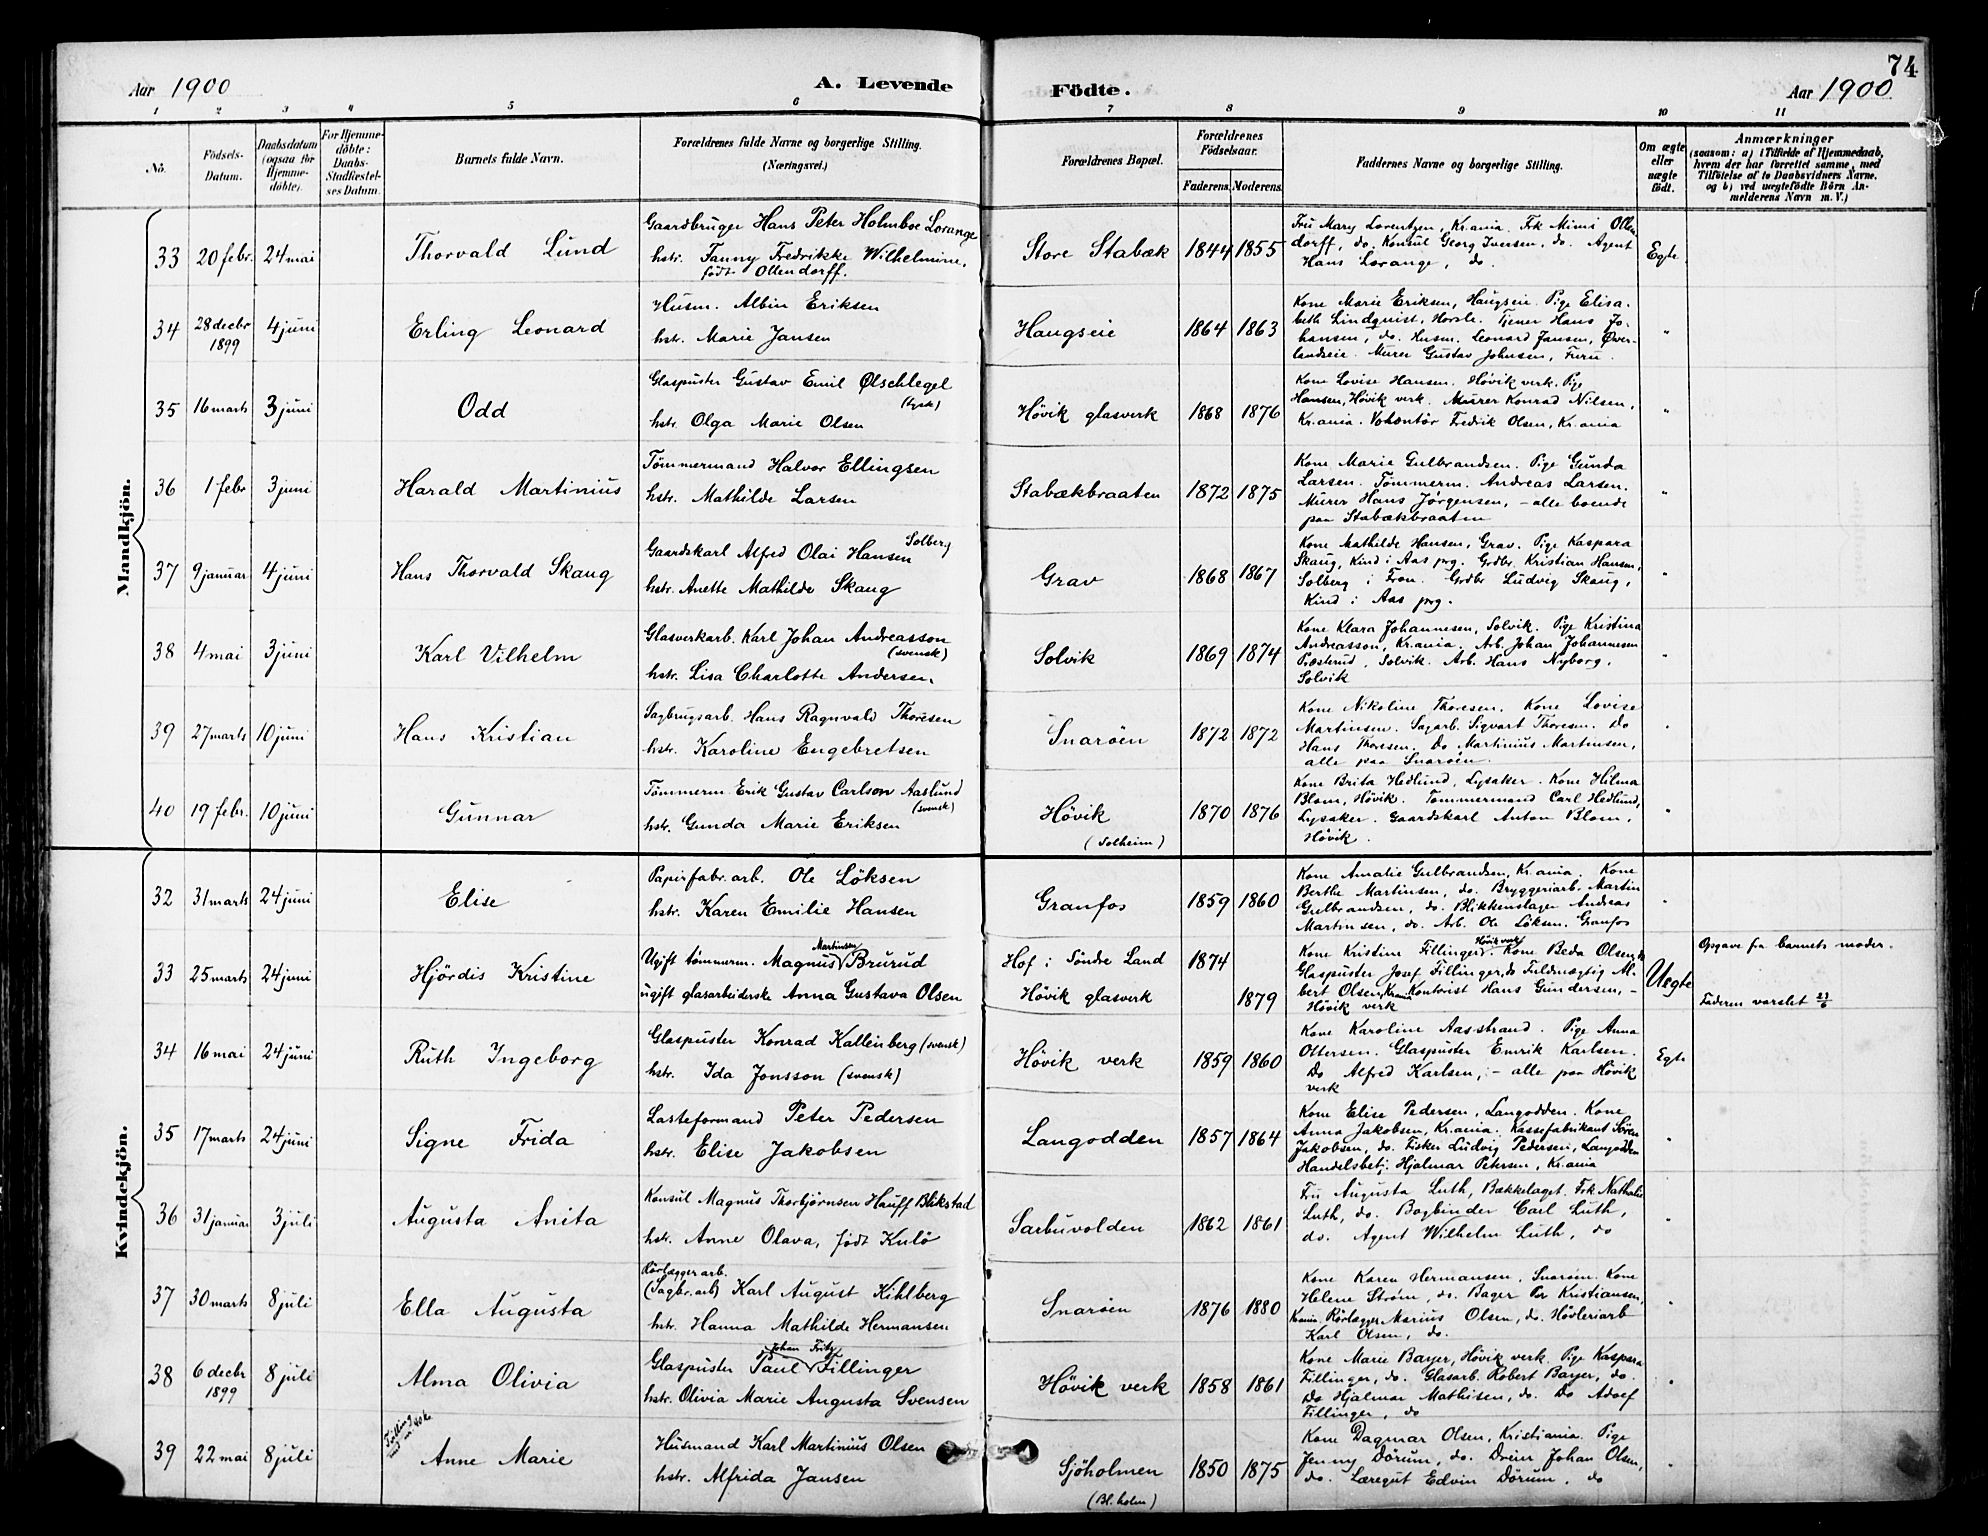 74
Aar 1900
A. Levende
Födte.
Aar 1900
1 2 3 4 5 6 7 8 9 10 11
No.
Födsels-Datum.
Daabsdatum (ogsaa for Hjemmedöbte).
For Hjemmedöbte: Daabs-Stadfæstelses Datum.
Barnets fulde Navn.
Forældrenes fulde Navne og borgerlige Stilling. (Næringsvei.)
Forældrenes Bopæl.
Forældrenes Födselsaar.
Faderens. Moderens.
Faddernes Navne og borgerlige Stilling.
Om ægte eller uægte födt.
Anmærkninger
(saasom: a) i Tilfælde af Hjemmedaab, hvem der har forrettet samme, med Tilföielse af to Daabsvidners Navne, og b) ved uægtefödte Börn Anmelderens Navn m. V.)
Mandkjön.
33 20 febr. 24 mai Thorvald Lund
Gaardbruger Hans Peter Holmboe Lorange
hstr. Fanny Fredrikke Wilhelmine,
født Ollendorff.
Store Stabæk 1844 1855
Fru Mary Lorentzen, Kr.ania. Frk Mimi Ollen
dorff, do. Konsul Georg Iversen, do. Agent
Hans Lorange, do.
Egte
34 28 decbr 1899 4 juni Erling Leonard
Husm. Albin Eriksen
hstr. Marie Jansen
Haugseie 1864 1863
Kone Marie Eriksen, Haugseie. Pige Elisa-
beth Lindquist, Horsle. Tjener Hans Jo-
hansen, do. Husm. Leonard Jansen, Øver-
landseie. Murer Gustav Johnsen, Furu.
"
35 16 marts 3 juni Odd
Glaspuster Gustav Emil Ølschlegel
(tysk)
hstr. Olga Marie Olsen
Høvik glasverk 1868 1876
Kone Lovise Hansen, Høvik verk. Pige
Hansen, Høvik verk. Murer Konrad Nilsen,
Kr.ania. Volontør Fredrik Olsen, Kr.ania
"
36 1 febr 3 juni Harald Martinius
Tømmermand Halvor Ellingsen
hstr. Mathilde Larsen
Stabækbraaten 1872 1875
Kone Marie Gulbrandsen. Pige Gunda
Larsen. Tømmerm. Andreas Larsen.
Murer Hans Jørgensen, - alle boende
paa Stabækbraaten
"
37 9 januar 4 juni Hans Thorvald Skaug
Solberg
Gaardskarl Alfred Olai Hansen
hstr. Anette Mathilde Skaug
Grav 1868 1867
Kone Mathilde Hansen, Grav. Pige Kaspara
Skaug, Kind i Aas prg. Grdbr. Kristian Hansen,
Solberg i Fron. Grdbr Ludvig Skaug,
Kind i Aas prg.
"
38 4 mai 3 juni Karl Vilhelm
Glasverkarb. Karl Johan Andreasson
(svensk)
hstr. Lisa Charlotte Andersen.
Solvik 1869 1874
Kone Klara Johannesen, Solvik. Pige Kristina
Andreasson, Kr.ania. Arb. Johan Johannesen
Præsterud, Solvik. Arb. Hans Nyborg,
Solvik
"
39 27 marts 10 juni Hans Kristian
Sagbrugsarb. Hans Ragnvald Thoresen
hstr. Karoline Engebretsen
Snarøen 1872 1872
Kone Nikoline Thoresen. Kone Lovise
Martinsen. Sagarb. Sigvart Thoresen. Do
Hans Thoresen. Do Martinius Martinsen,
alle paa Snarøen.
"
40 19 febr. 10 juni Gunnar
Tømmerm. Erik Gustav Carlson Aaslund
(svensk)
hstr. Gunda Marie Eriksen
Høvik 1870 1876
(Solheim)
Kone Brita Hedlund, Lysaker. Kone Hilma
Blom, Høvik. Tømmermand Carl Hedlund,
Lysaker. Gaardskarl Anton Blom,
Høvik.
"
Kvindekjön.
32 31 marts 24 juni Elise
Papirfabr.arb. Ole Löksen
hstr. Karen Emilie Hansen
Granfos 1859 1860
Kone Amalie Gulbrandsen, Kr.ania. Kone
Berthe Martinsen, do. Bryggeriarb. Martin
Gulbrandsen, do. Blikkenslager Andreas
Martinsen, do. Arb. Ole Löksen, Granfos
"
33 25 marts 24 juni Hjördis Kristine
Martinsen
Ugift tømmerm. Magnus Brurud
ugift glasarbeiderske Anna Gustava Olsen
Hof i Söndre Land 1874
Høvik glasverk 1879
Høvik verk
Kone Kristine Fillinger. Kone Beda Olsen, do
Glaspuster Josef Fillinger, do Fuldmægtig Al-
bert Olsen, Kr.ania Kontorist Hans Gundersen, -
Høvik verk
Uegte
Opgave fra barnets moder.
Faderen varslet 21/6
34 16 mai 24 juni Ruth Ingeborg
Glaspuster Konrad Kallenberg (svensk)
hstr. Ida Jonsson (svensk)
Høvik verk 1859 1860
Kone Karoline Aasstrand. Pige Anna
Ottersen. Glaspuster Emrik Karlsen.
Do Alfred Karlsen, - alle paa Høvik
verk
Egte
35 17 marts 24 juni Signe Frida
Lasteformand Peter Pedersen
hstr. Elise Jakobsen
Langodden 1857 1864
Kone Elise Pedersen, Langodden. Kone
Anna Jakobsen, Kr.ania. Kassefabrikant Søren
Jakobsen, do. Fisker Ludvig Pedersen, Langodden
Handelsbetj. Hjalmar Petersen, Kr.ania
"
36 31 januar 3 juli Augusta Anita
Konsul Magnus Thorbjørnsen Hauff Blikstad
hstr. Anne Olava, født Kulö
Sarbuvolden 1862 1861
Fru Augusta Luth, Bækkelaget. Frk Nathalie
Luth, do. Bogbinder Carl Luth,
do. Agent Wilhelm Luth, do
"
37 30 marts 8 juli Ella Augusta
Rørlæggerarb.
(Sagbr.arb) Karl August Kihlberg
hstr. Hanna Mathilde Hermansen
Snarøen 1876 1880
Kone Karen Hermansen, Snarøen. Kone
Helene Strøm, do. Bager Per Kristiansen,
Kr.ania. Rørlægger Marius Olsen, do. Høvleriarb
Karl Olsen, do.
"
38 6 decbr 1899 8 juli Alma Olivia
Johan Fritz
Glaspuster Paul Fillinger
hstr. Olivia Marie Augusta Svensen
Høvik verk 1858 1861
Kone Marie Bayer, Høvik verk. Pige Kaspara
Fillinger, do. Glasarb. Robert Bayer, do.
Do Hjalmar Mathisen, do. Do Adolf
Fillinger, do
"
39 22 mai 8 juli Anne Marie
Tvilling med no 40 k.
Husmand Karl Martinius Olsen
hstr. Alfrida Jansen
Sjöholmen 1850 1875
(Bl. holm)
Kone Dagmar Olsen, Kristiania. Pige
Jenny Dörum, do. Dreier Johan Olsen,
do. Læregut Edvin Dörum, do
"